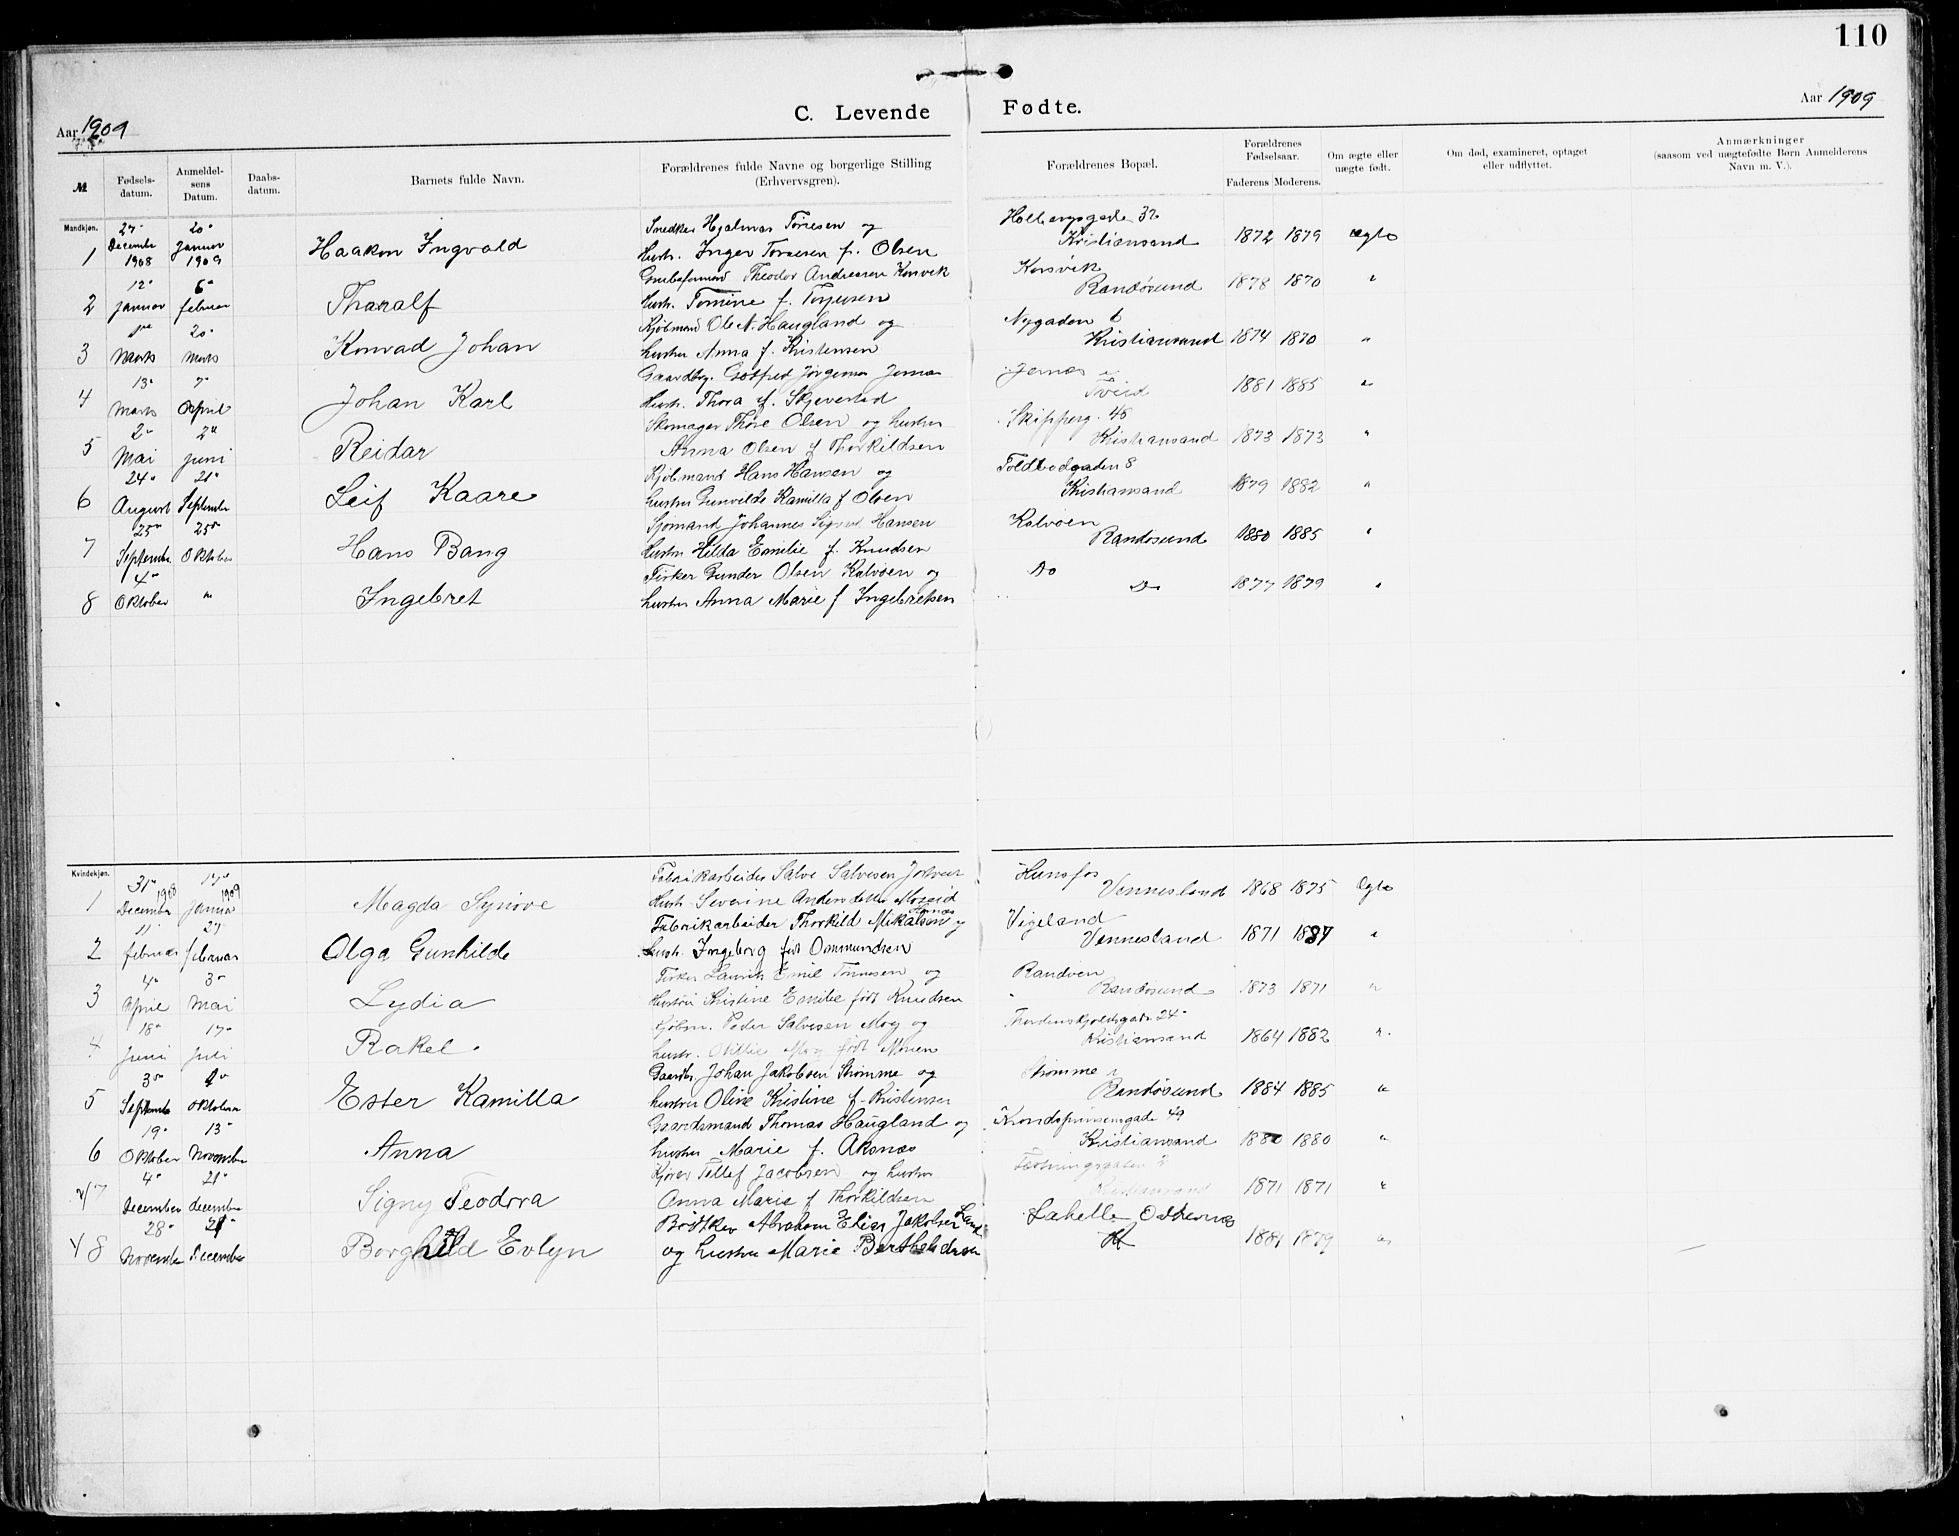 110
C. Levende Fødte.
Aar 1909
Aar 1909
№
Fødsels-datum.
Anmeldelsens Datum.
Daabs-datum.
Barnets fulde Navn.
Forældrenes fulde Navne og borgerlige Stilling (Erhvervsgren).
Forældrenes Bopæl.
Forældrenes Fødselsaar.
Faderens. Moderens.
Om ægte eller uægte født.
Om død, examineret, optaget eller udflyttet.
Anmærkninger (saasom ved uægtefødte Børn Anmelderens Navn m. V.).
Mandkjøn.
27 20 Snedker Hjalmar Tønesen og Holbergsgade 32
1 December 1908 Januar 1909 Haakon Ingvald Hustr. Inger Tønesen f. Olsen Kristiansand 1872 1879 ægte
12 6 Theodor Andreasen Korsvik Korsvik
2 Januar februar Tharalf Hustr. Tomine f. Torjusen Randøsund 1878 1870 "
20 Kjøbmand Ole N. Haugland og Nygaden 6
3 Marts Marts Konrad Johan hustru Anna f. Kristensen Kristiansand 1874 1870 "
13 7 Gaardbr. Gotfred Jørgensen Jernæs Jernæs
4 Marts April Johan Karl Hustr. Thora f. Skjevestad Tveid 1881 1885 "
2 2 Skomager Thore Olsen og hustru Skipperg. 48
5 Mai Juni Reidar Anna Olsen f Thorkildsen Kristiansand 1873 1873 "
24 21 Kjøbmand Hans Hansen og Toldbodgaden 8
6 August September Leif Kaare hustru Gunvilde Kamilla f Olsen Kristiansand 1879 1882 "
25 25 Sjømand Johannes Sigvard Hansen Kalvøen
7 September Oktober Hans Bang hustru Hilda Emilie f. Knudsen Randøsund 1880 1885 "
4 Fisker Gunder Olsen Kalvøen og Do
8 Oktober " Ingebret hustru Anna Marie f Ingebretsen Do 1877 1879 "
Kvindekjøn.
31 1908 17 1909 Fabrikarbeider Salve Salvesen Hunsfos
1 December Januar Magda Synøve Hustr. Severine Andersdatter Moseid Vennesland 1868 1875 Ægte
11 27 Fabrikarbeider Thorkild Mikalsen og Vigeland
2 februar februar Olga Gunhilde Hustr. Ingeborg født Ommundsen Vennesland 1871 1887 "
4 3 Fisker Laurits Emil Tønnesen og Randøen
3 April Mai Lydia Hustru Kristine Emilie født Knudsen Randøsund 1873 1871 "
18 17 Kjøbm. Peder Salvesen Moy og Thordenskjoldsgade 24
4 Juni Juli Rakel hustr. Moy født Monen Kristiansand 1864 1882 "
3 Gaardbr. Johan Jakobsen Strømme og Strømme i
5 Septemb. Oktober Ester Kamilla hustru Oline Kristine f. Kristensen Randøsund 1884 1885 "
19 13 Gaardsmand Thomas Haugland og Krondsprinsensgade 49
6 Oktober November Anna hustru Marie f. Aksnæs Kristiansand 1880 1880 "
4 21 Kjører Tellef Jacobsen og hustru Fæstningsgaten
7 December december Signy Teodora Anna Marie f Thorkildsen Kristiansand 1871 1871 "
28 Bødtker Abraham Elias Jakobsen Lahelle Oddernæs
8 November December Borghild Evlyn og hustru Marie Berthelsdsen 1881 1879 "